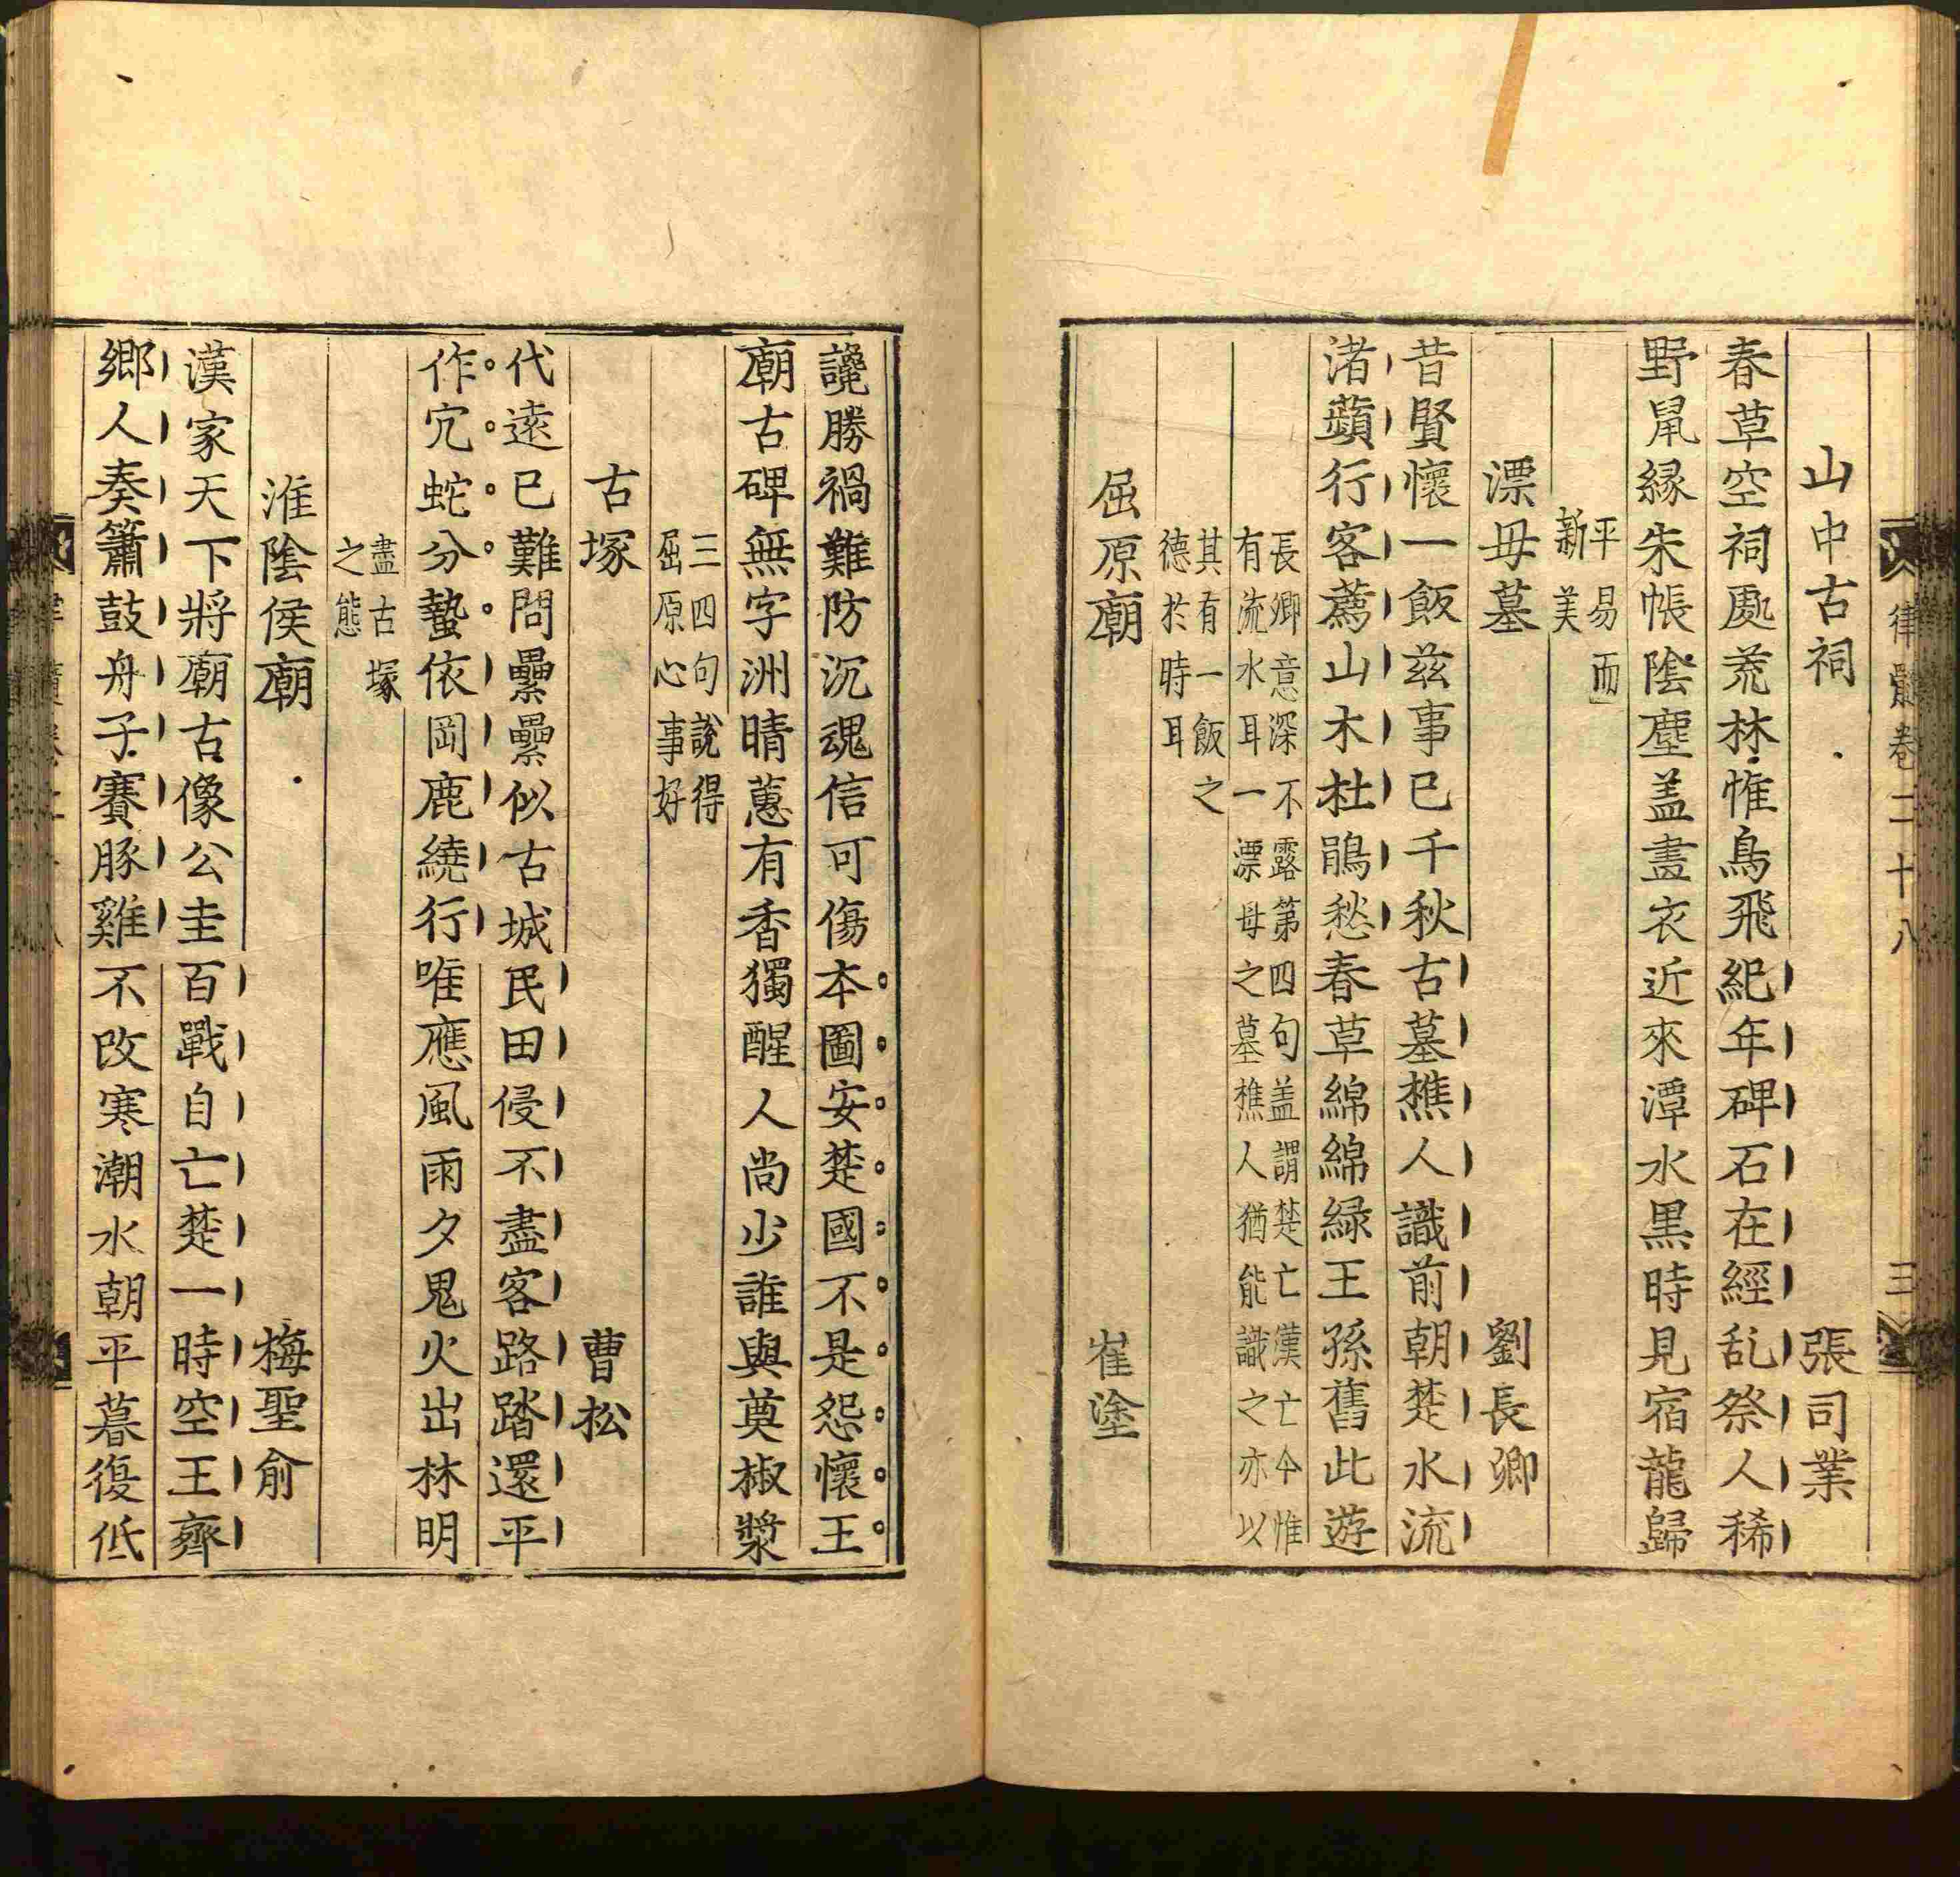 律髓卷二十八 三
山中古祠 張司業
春草空祠處荒林惟鳥飛紀年碑石在經乱祭人稀
野鼠緣朱帳陰塵盖畫衣近來潭水黒時見宿龍歸
平易而
新美
漂母墓 劉長卿
昔賢懷一飯兹事已千秋古墓樵人識前朝楚水流
渚蘋行客薦山木杜鵑愁春草綿綿緑王孫舊此遊
長卿意深不露第四句盖謂楚亡漢亡今惟
有流水耳一漂母之墓樵人猶能識之亦以
其有一飯之
德於時耳
屈原廟 崔塗
讒勝禍難防沉魂信可傷本圖安楚國不是怨懷王
廟古碑無字洲晴蕙有香獨醒人尚少誰與奠椒漿
三四句說得
屈原心事好
古塚 曹松
代遠已難問纍纍似古城民田侵不盡客路踏還平
作穴蛇分蟄依岡鹿繞行唯應風雨夕鬼火出林明
盡古塚
之態
淮陰侯廟 梅聖俞
漢家天下將廟古像公圭百戰自亡楚一時空王齊
鄉人奏簫鼓舟子賽豚雞不改寒潮水朝平暮復低